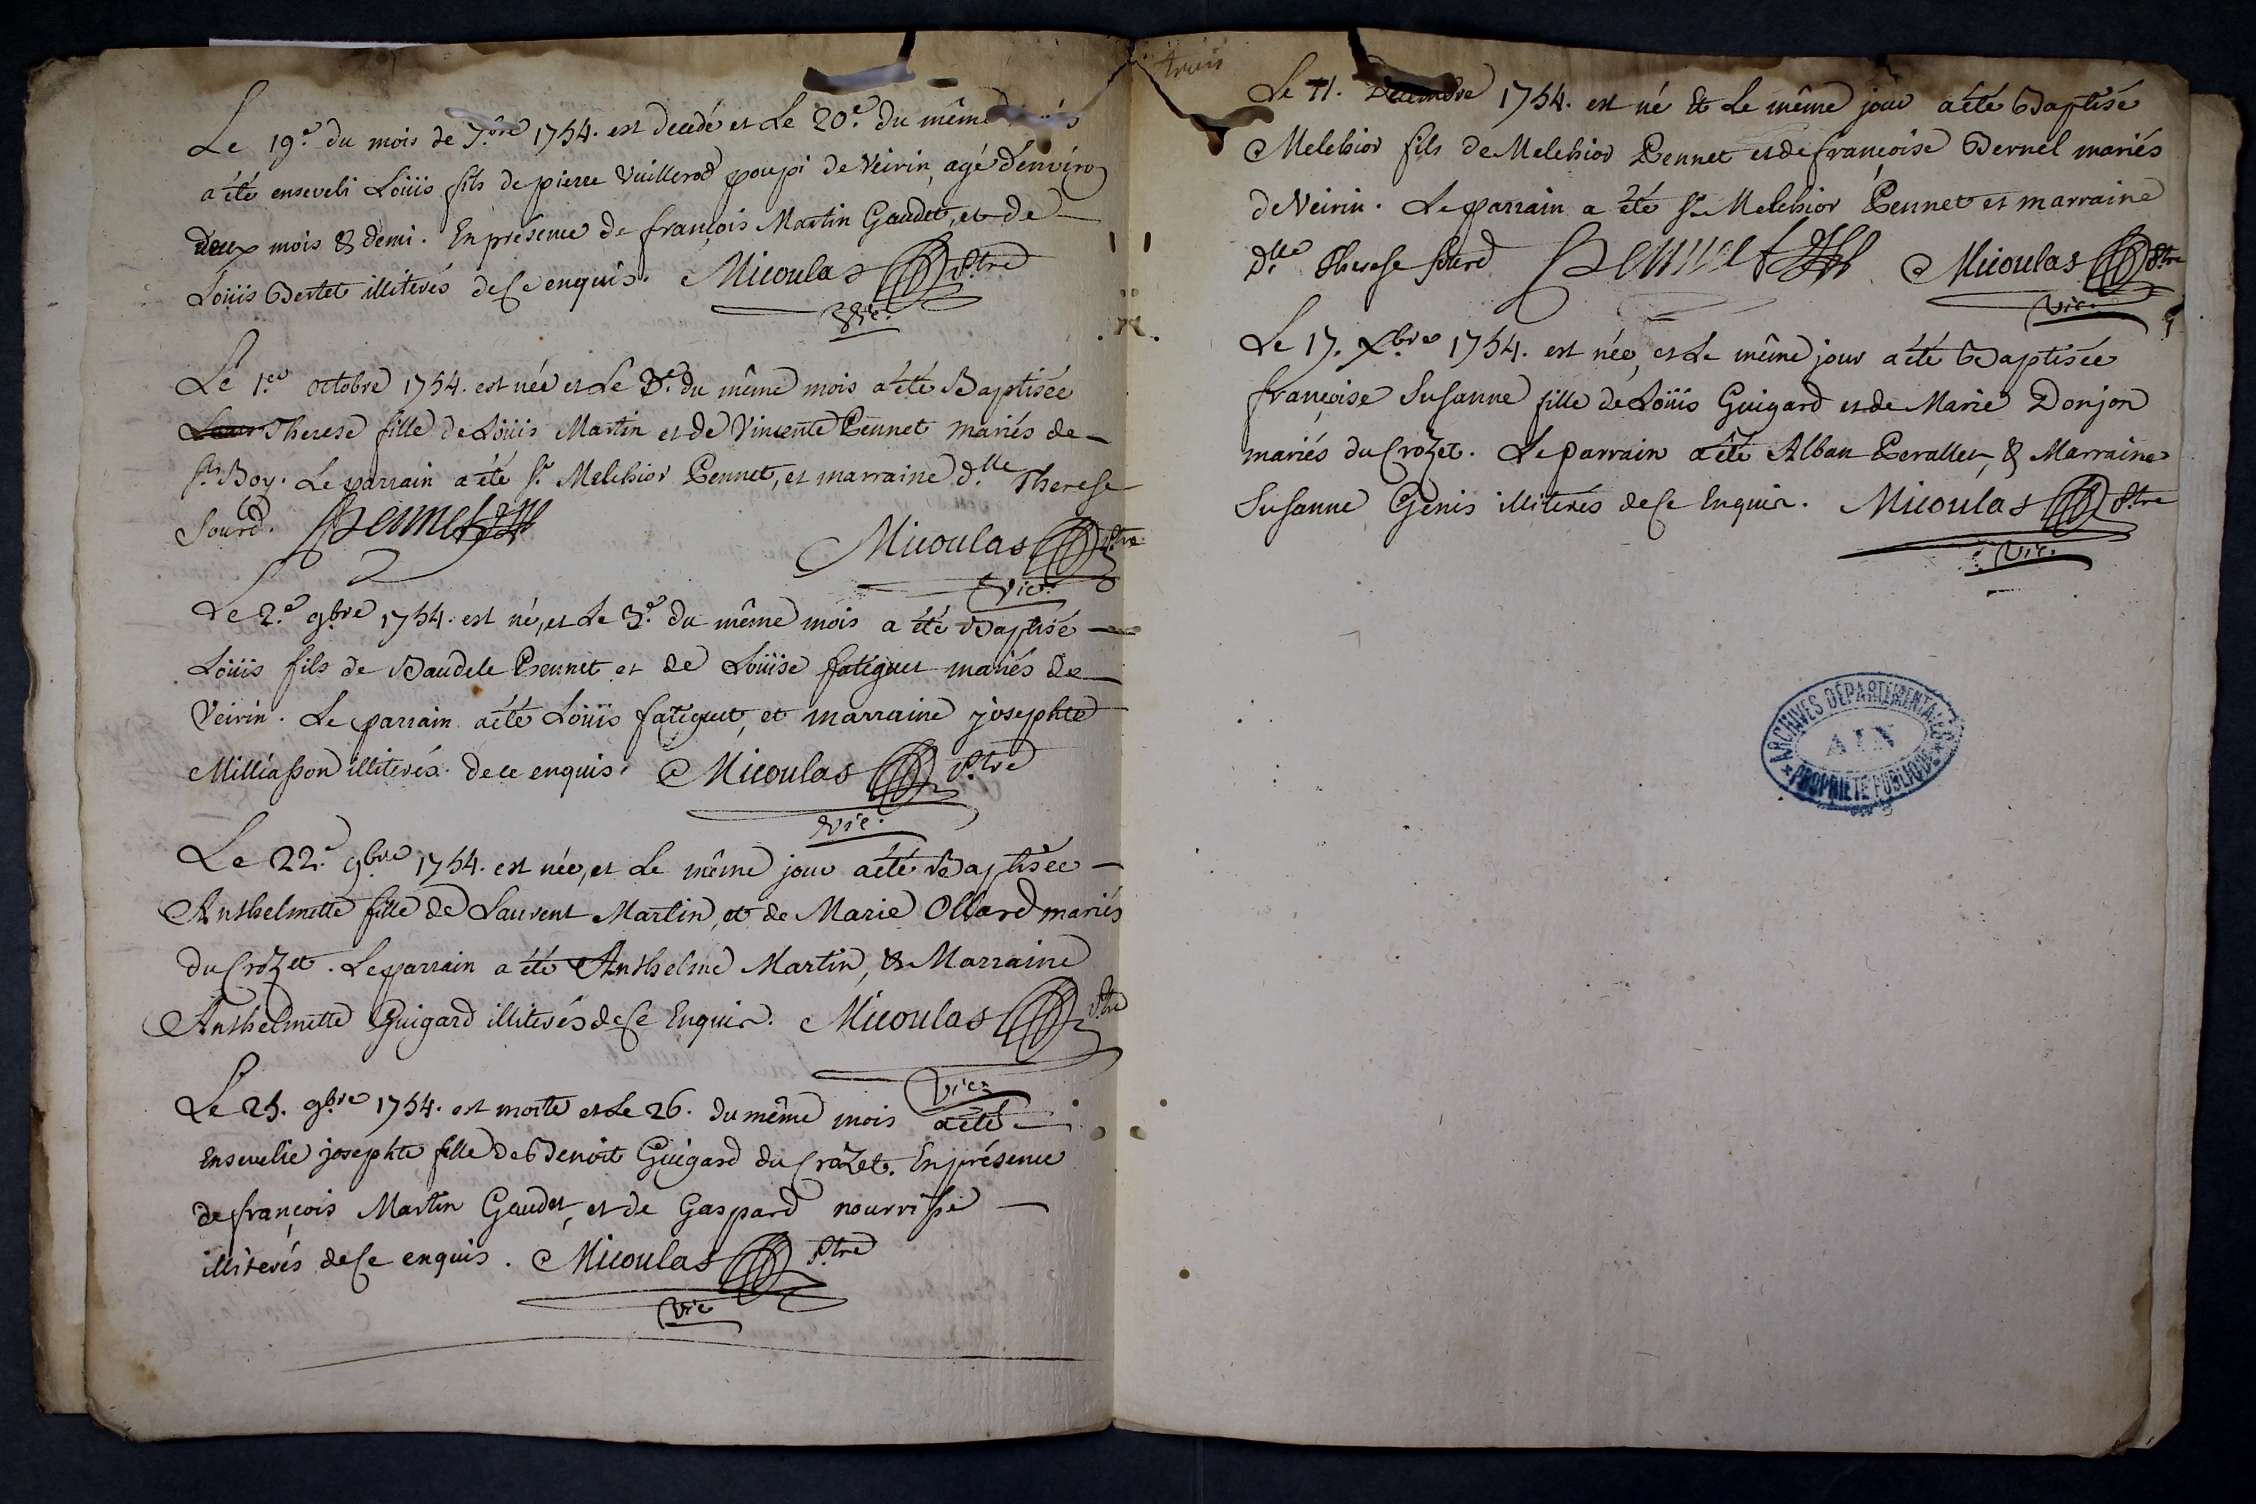 Le 19.e du mois de 7.bre 1754. est decedé et Le 20.e du même mois
a été enseveli Loüis fils de pierre Vuillerod poupi de Veirin, agé d'environ
deux mois & demi. En présence de françois Martin Gaudet, et de
Loüis Bertet illiterés de Ce enquis. Micoulas P.tre
Vic.
Le 1.er octobre 1754. est née et Le 3.e du même mois a été Baptisée
Therese fille de Loüis Martin et de Vincente Pennet mariés de
St. Boy. Le parrain a été Sr. Melchior Pennet, et marraine d.lle Therese
Sourd. Pennet Micoulas P.tre
Vic.
Le 2.e 9.bre 1754. est né, et Le 3.e du même mois a été Baptisé
Loüis fils de Baudele Pennet et de Loüise fatiguet mariés de
Veirin. Le parrain a été Loüis fatiguet, et marraine josephte
Milliasson illiterés. de ce enquis. Micoulas P.tre
Vic.
Le 22.e 9.bre 1754. est née, et Le même jour a été Baptisée
Anthelmette fille de Laurent Martin, et de Marie Ollard mariés
du Crozet. Le parrain a été Anthelme Martin, & Marraine
Anthelmette Guigard illiterés de Ce Enquis. Micoulas P.tre
Vic.
Le 25. 9.bre 1754. est morte et Le 26. du même mois a été
Ensevelie josephte fille de Benoit Guigard du Crozet. En présence
de françois Martin Gaudet, et de Gaspard nourrisse
illiterés de Ce enquis. Micoulas P.tre
Vic
trois
Le 11. Decembre 1754. est né Et Le même jour a été Baptisé
Melchior fils de Melchior Pennet et de françoise Bernel mariés
de Veirin. Le parrain a été Sr. Melchior Pennet et marraine
D.lle Therese sourd Pennet Micoulas P.tre
Vic.
Le 17. Xbre 1754. est née, et Le même jour a été Baptisée
françoise Susanne fille de Loüis Guigard et de Marie Donjon
mariés du Crozet. Le parrain a été Alban Perallet, & Marraine
Susanne Genis illiterés de Ce Enquis. Micoulas P.tre
Vic.
ARCHIVES DÉPARTEMENTALES
AIN
PROPRIÉTÉ PUBLIQUE